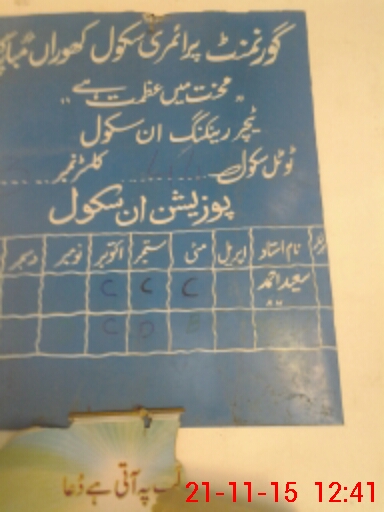 گورنمنٹ پرائمری سکول کھوراں
"محنت میں عظمت ہے"
ٹیچر رینکنگ ان سکول
ٹوٹل سکول ........ کلسٹر نمبر ........
پوزیشن ان سکول
نام استاد اپریل مئی ستمبر اکتوبر نومبر دسمبر
سعید احمد C C C
B D C
لب پہ آتی ہے دُعا
21-11-15 12:41